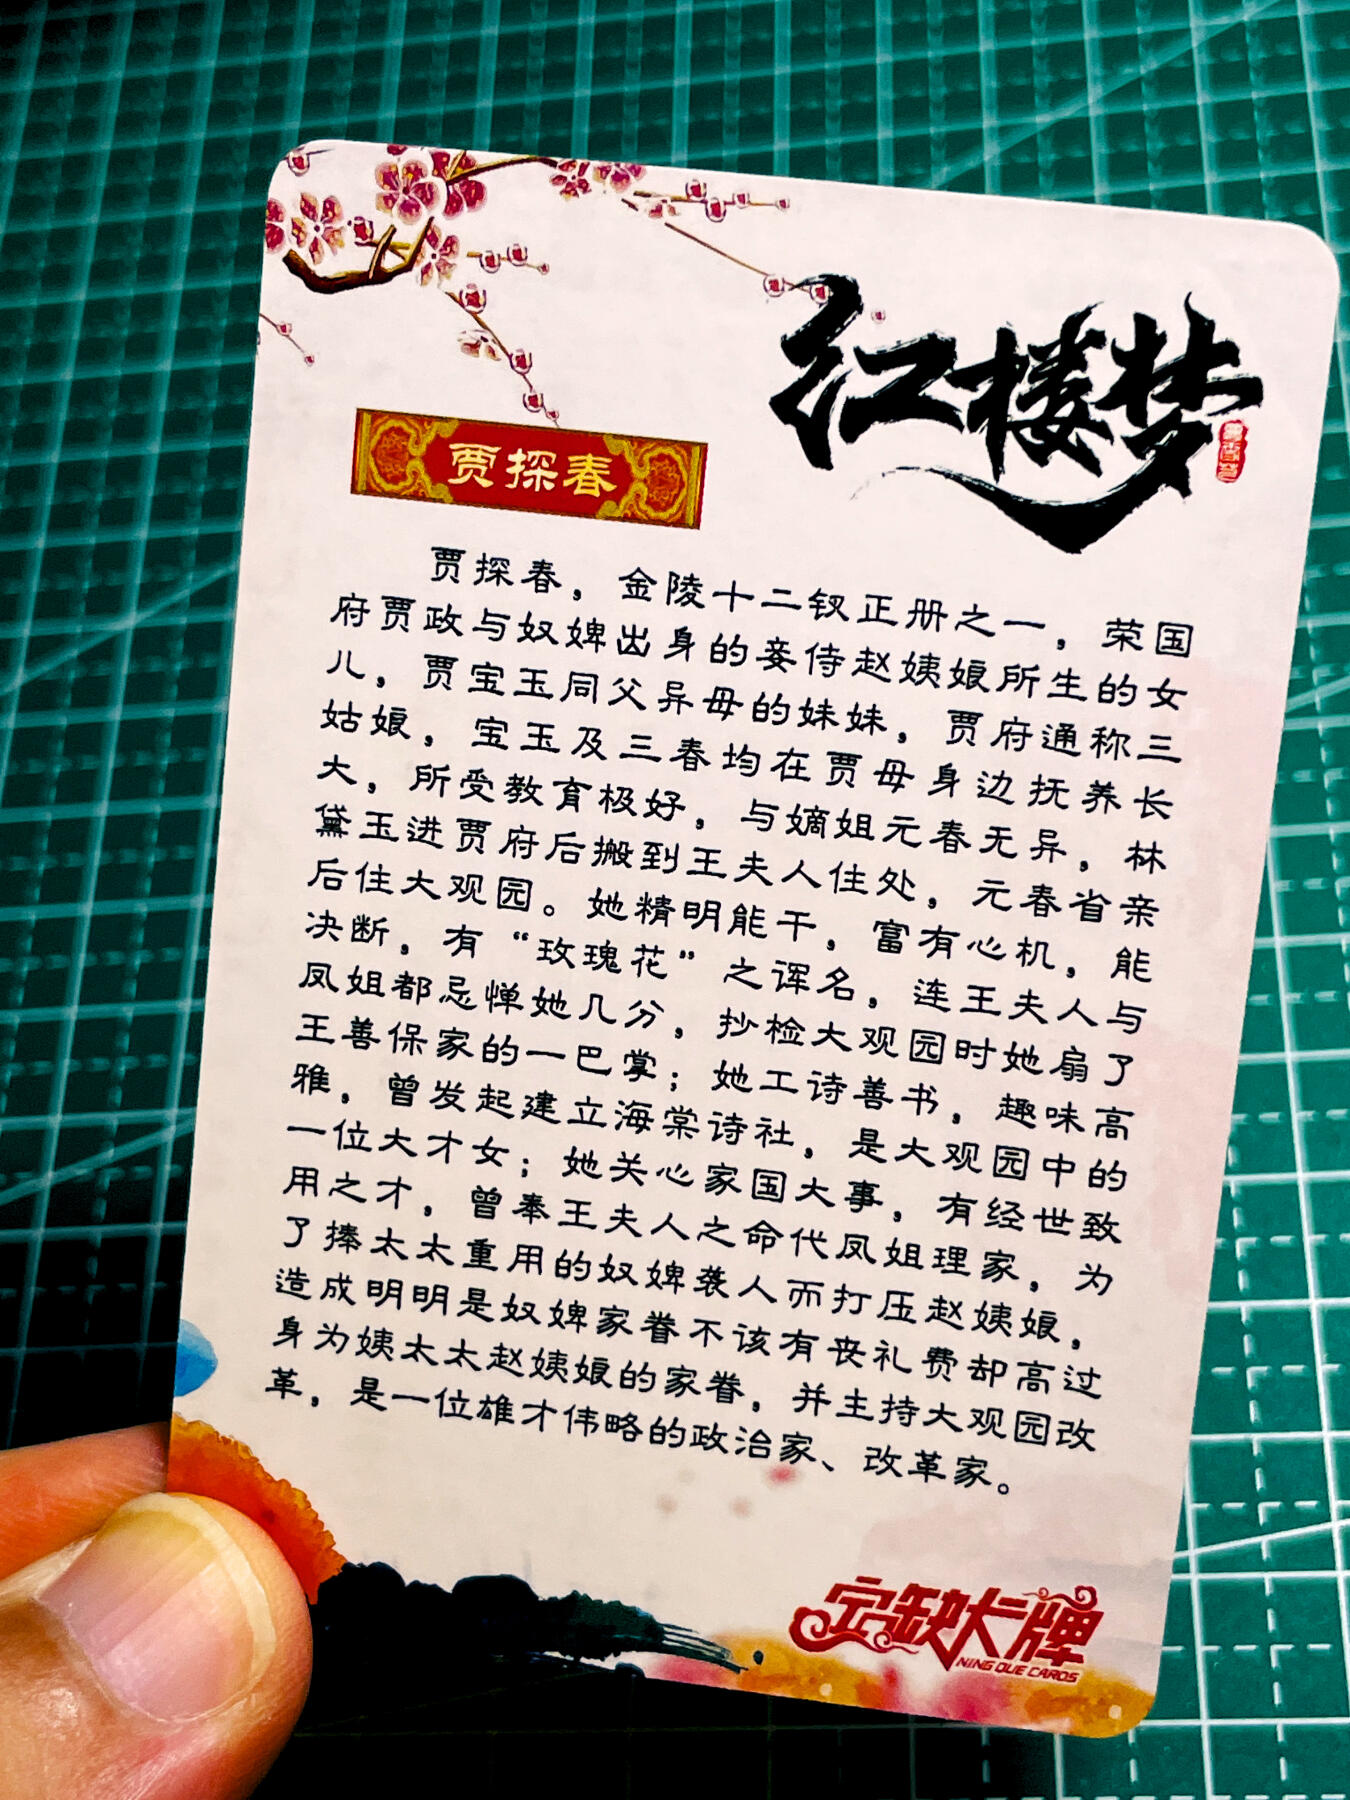 红楼梦
贾探春
贾探春，金陵十二钗正册之一，荣国
府贾政与奴婢出身的妾侍赵姨娘所生的女
儿，贾宝玉同父异母的妹妹，贾府通称三
姑娘，宝玉及三春均在贾母身边抚养长
大，所受教育极好，与嫡姐元春无异，林
黛玉进贾府后搬到王夫人住处，元春省亲
后住大观园。她精明能干，富有心机，能
决断，有“玫瑰花”之诨名，连王夫人与
凤姐都忌惮她几分，抄检大观园时她扇了
王善保家的一巴掌；她工诗善书，趣味高
雅，曾发起建立海棠诗社，是大观园中的
一位大才女；她关心家国大事，有经世致
用之才，曾奉王夫人之命代凤姐理家，为
了捧太太重用的奴婢袭人而打压赵姨娘，
造成明明是奴婢家眷不该有丧礼费却高过
身为姨太太赵姨娘的家眷，并主持大观园改
革，是一位雄才伟略的政治家、改革家。
宁缺大牌
NING QUE CARDS